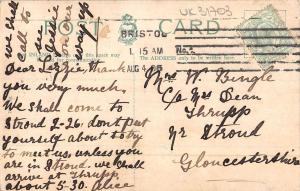 we shall
call to
see
Cassie
on our
way up
POST CARD
UK31703
BRISTOL
1.15 AM
AUG 4
No. 2
The ADDRESS only to be written here.
Dear Lizzie, Thank
you very much.
We shall come to
Stroud 2-26. dont put
yourself about to try
to meet us unless you
are in Stroud. We shall
arrive at Thrupp
about 5-30. Alice
Mrs W Bingle
c/o Mrs Dean
Thrupp
Nr Stroud
Gloucestershire